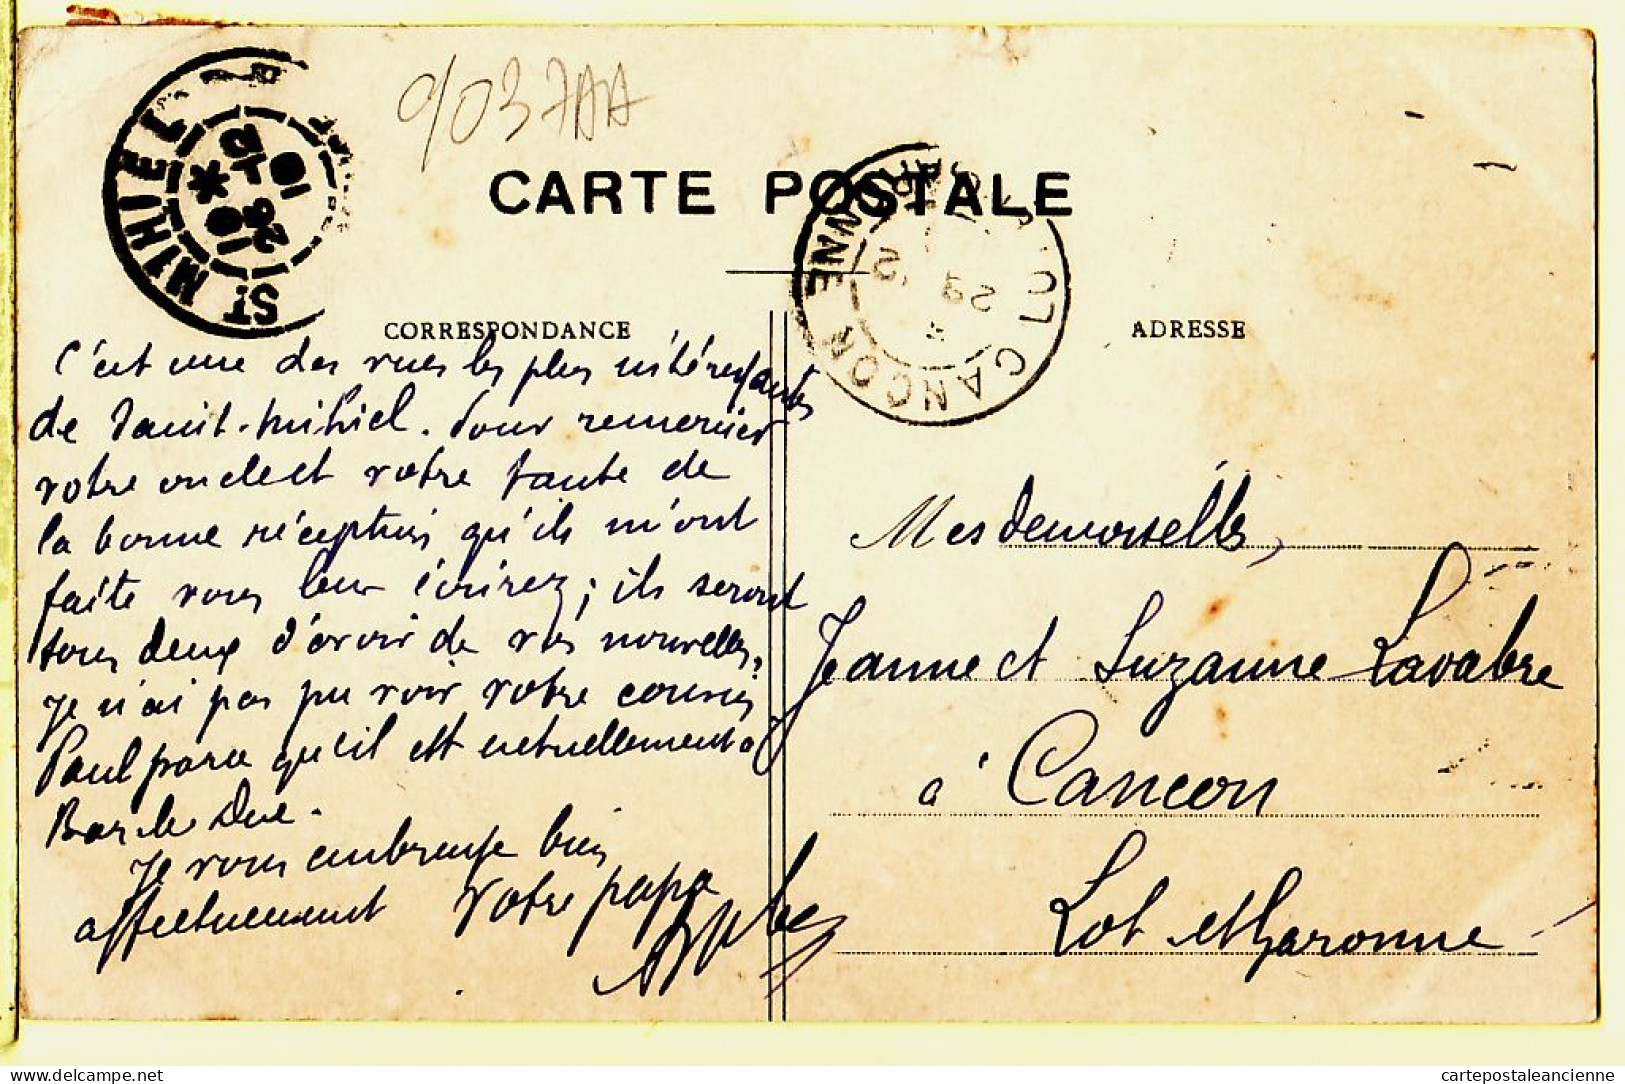 9037AA
ST MIHIEL
10
26
10
CARTE POSTALE
CANCON LOT GARONNE
CORRESPONDANCE
ADRESSE
C'est une des vues les plus intéressantes
de Saint-Mihiel. Pour remercier
votre oncle et votre tante de
la bonne réception qu'ils m'ont
faite vous leur écrirez; ils seront
tous deux d'avoir de vos nouvelles.
Je n'ai pas pu voir votre cousin
Paul parce qu'il est actuellement à
Bar le Duc.
Je vous embrasse bien
affectueusement Votre papa
Mesdemoiselles,
Jeanne et Suzanne Lavabre
à Cancon
Lot et Garonne
delcampe.net
cartepostaleancienne